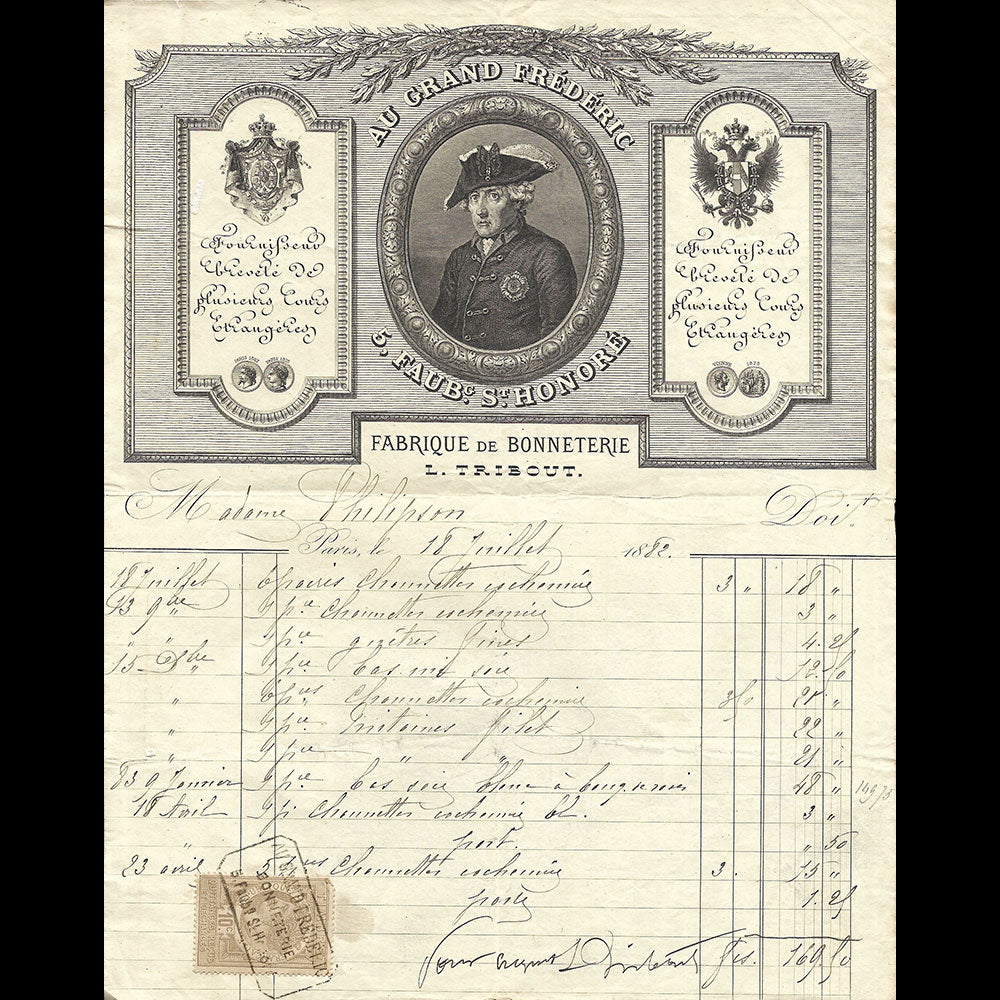 AU GRAND FRÉDÉRIC
Fournisseur
breveté de
plusieurs Cours
Etrangères
PARIS 1867 PARIS 1878
Fournisseur
breveté de
plusieurs Cours
Etrangères
VIENNE 1873
5, FAUBG. ST. HONORÉ
FABRIQUE DE BONNETERIE
L. TRIBOUT.
Madame Philipson Doit
Paris, le 18 Juillet 1882.
18 Juillet 6 paires Chaussettes cachemire 3 " 18 "
13 9bre 1 pre Chaussettes cachemire 3 "
" " 1 pre guêtres fines 4. 25
15 Xbre " 1 pre bas mi soie 12. 50
" 6 pres Chaussettes cachemire 3 50 21 "
" 1 pre filet 22 "
" 1 pre " " 21 "
83 9 Janvier 1 pre bas soie 48 " 149 75
18 Avril 1 p Chaussettes cachemire bl. 3 "
port. " 50
23 avril 5 pres Chaussettes cachemire 3. 15 "
port 1. 25
Pour acquit L Tribout frs. 169. 50
10c
AU GRAND FREDERIC
BONNETERIE
5, FAUBG St. H